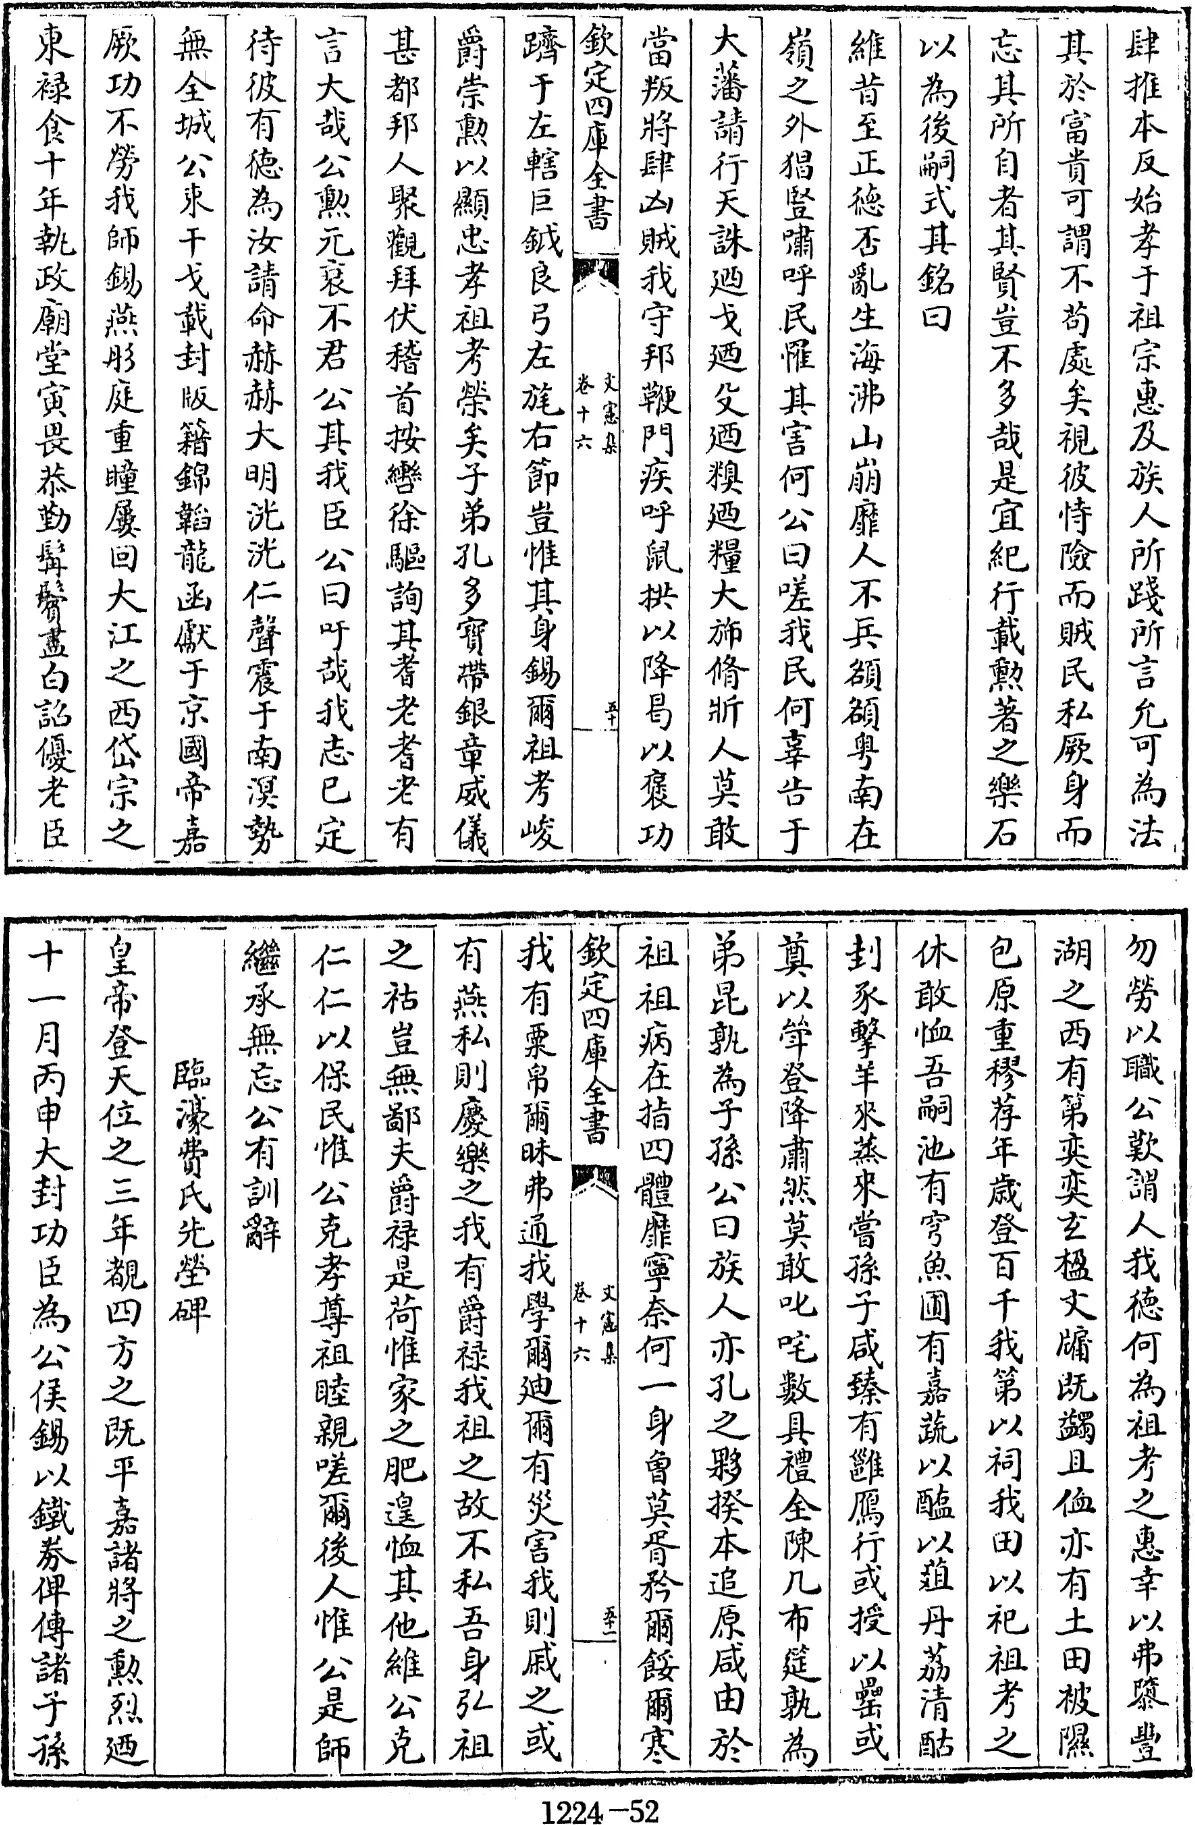 肆推本反始孝于祖宗惠及族人所踐所言允可為法
其於富貴可謂不苟處矣視彼恃險而賊民私厥身而
忘其所自者其賢豈不多哉是宜紀行載勲著之樂石
以為後嗣式其銘曰
維昔至正德否亂生海沸山崩靡人不兵頟頟粤南在
嶺之外猖豎嘯呼民罹其害何公曰嗟我民何辜告于
大藩請行天誅廼戈廼殳廼糗廼糧大斾脩斨人莫敢
當叛將肆凶賊我守邦鞭門疾呼鼠拱以降曷以褒功
欽定四庫全書
文憲集
卷十六
五十
躋于左轄巨鉞良弓左旄右節豈惟其身錫爾祖考峻
爵崇勲以顯忠孝祖考榮矣子弟孔多寶帶銀章威儀
甚都邦人聚觀拜伏稽首按轡徐驅詢其耆老耆老有
言大哉公勲元衰不君公其我臣公曰吁哉我志已定
待彼有德為汝請命赫赫大明洸洸仁聲震于南溟勢
無全城公束干戈載封版籍錦韜龍函獻于京國帝嘉
厥功不勞我師錫燕彤庭重瞳屢回大江之西岱宗之
東祿食十年執政廟堂寅畏恭勤髯鬢盡白詔優老臣
勿勞以職公歎謂人我德何為祖考之惠幸以弗隳豐
湖之西有第奕奕玄楹文牖既蠲且侐亦有土田被隰
包原重穋荐年歲登百千我第以祠我田以祀祖考之
休敢恤吾嗣池有穹魚圃有嘉蔬以醢以菹丹荔清酤
刲豕擊羊來烝來嘗孫子咸臻有雝鴈行或授以罍或
奠以斝登降肅然莫敢叱咤數具禮全陳几布筵孰為
弟昆孰為子孫公曰族人亦孔之夥揆本追原咸由於
祖祖病在指四體靡寧奈何一身曾莫胥矜爾餒爾寒
欽定四庫全書
文憲集
卷十六
五十一
我有粟帛爾昧弗通我學爾迪爾有災害我則戚之或
有燕私則慶樂之我有爵祿我祖之故不私吾身弘祖
之祜豈無鄙夫爵祿是荷惟家之肥遑恤其他維公克
仁仁以保民惟公克孝尊祖睦親嗟爾後人惟公是師
繼承無忘公有訓辭
臨濠費氏先塋碑
皇帝登天位之三年覩四方之既平嘉諸將之勲烈廼
十一月丙申大封功臣為公侯錫以鐵券俾傳諸子孫
1224-52